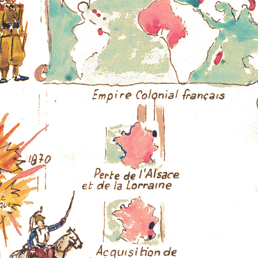 Empire Colonial français
1870
Perte de l'Alsace
et de la Lorraine
Acquisition de